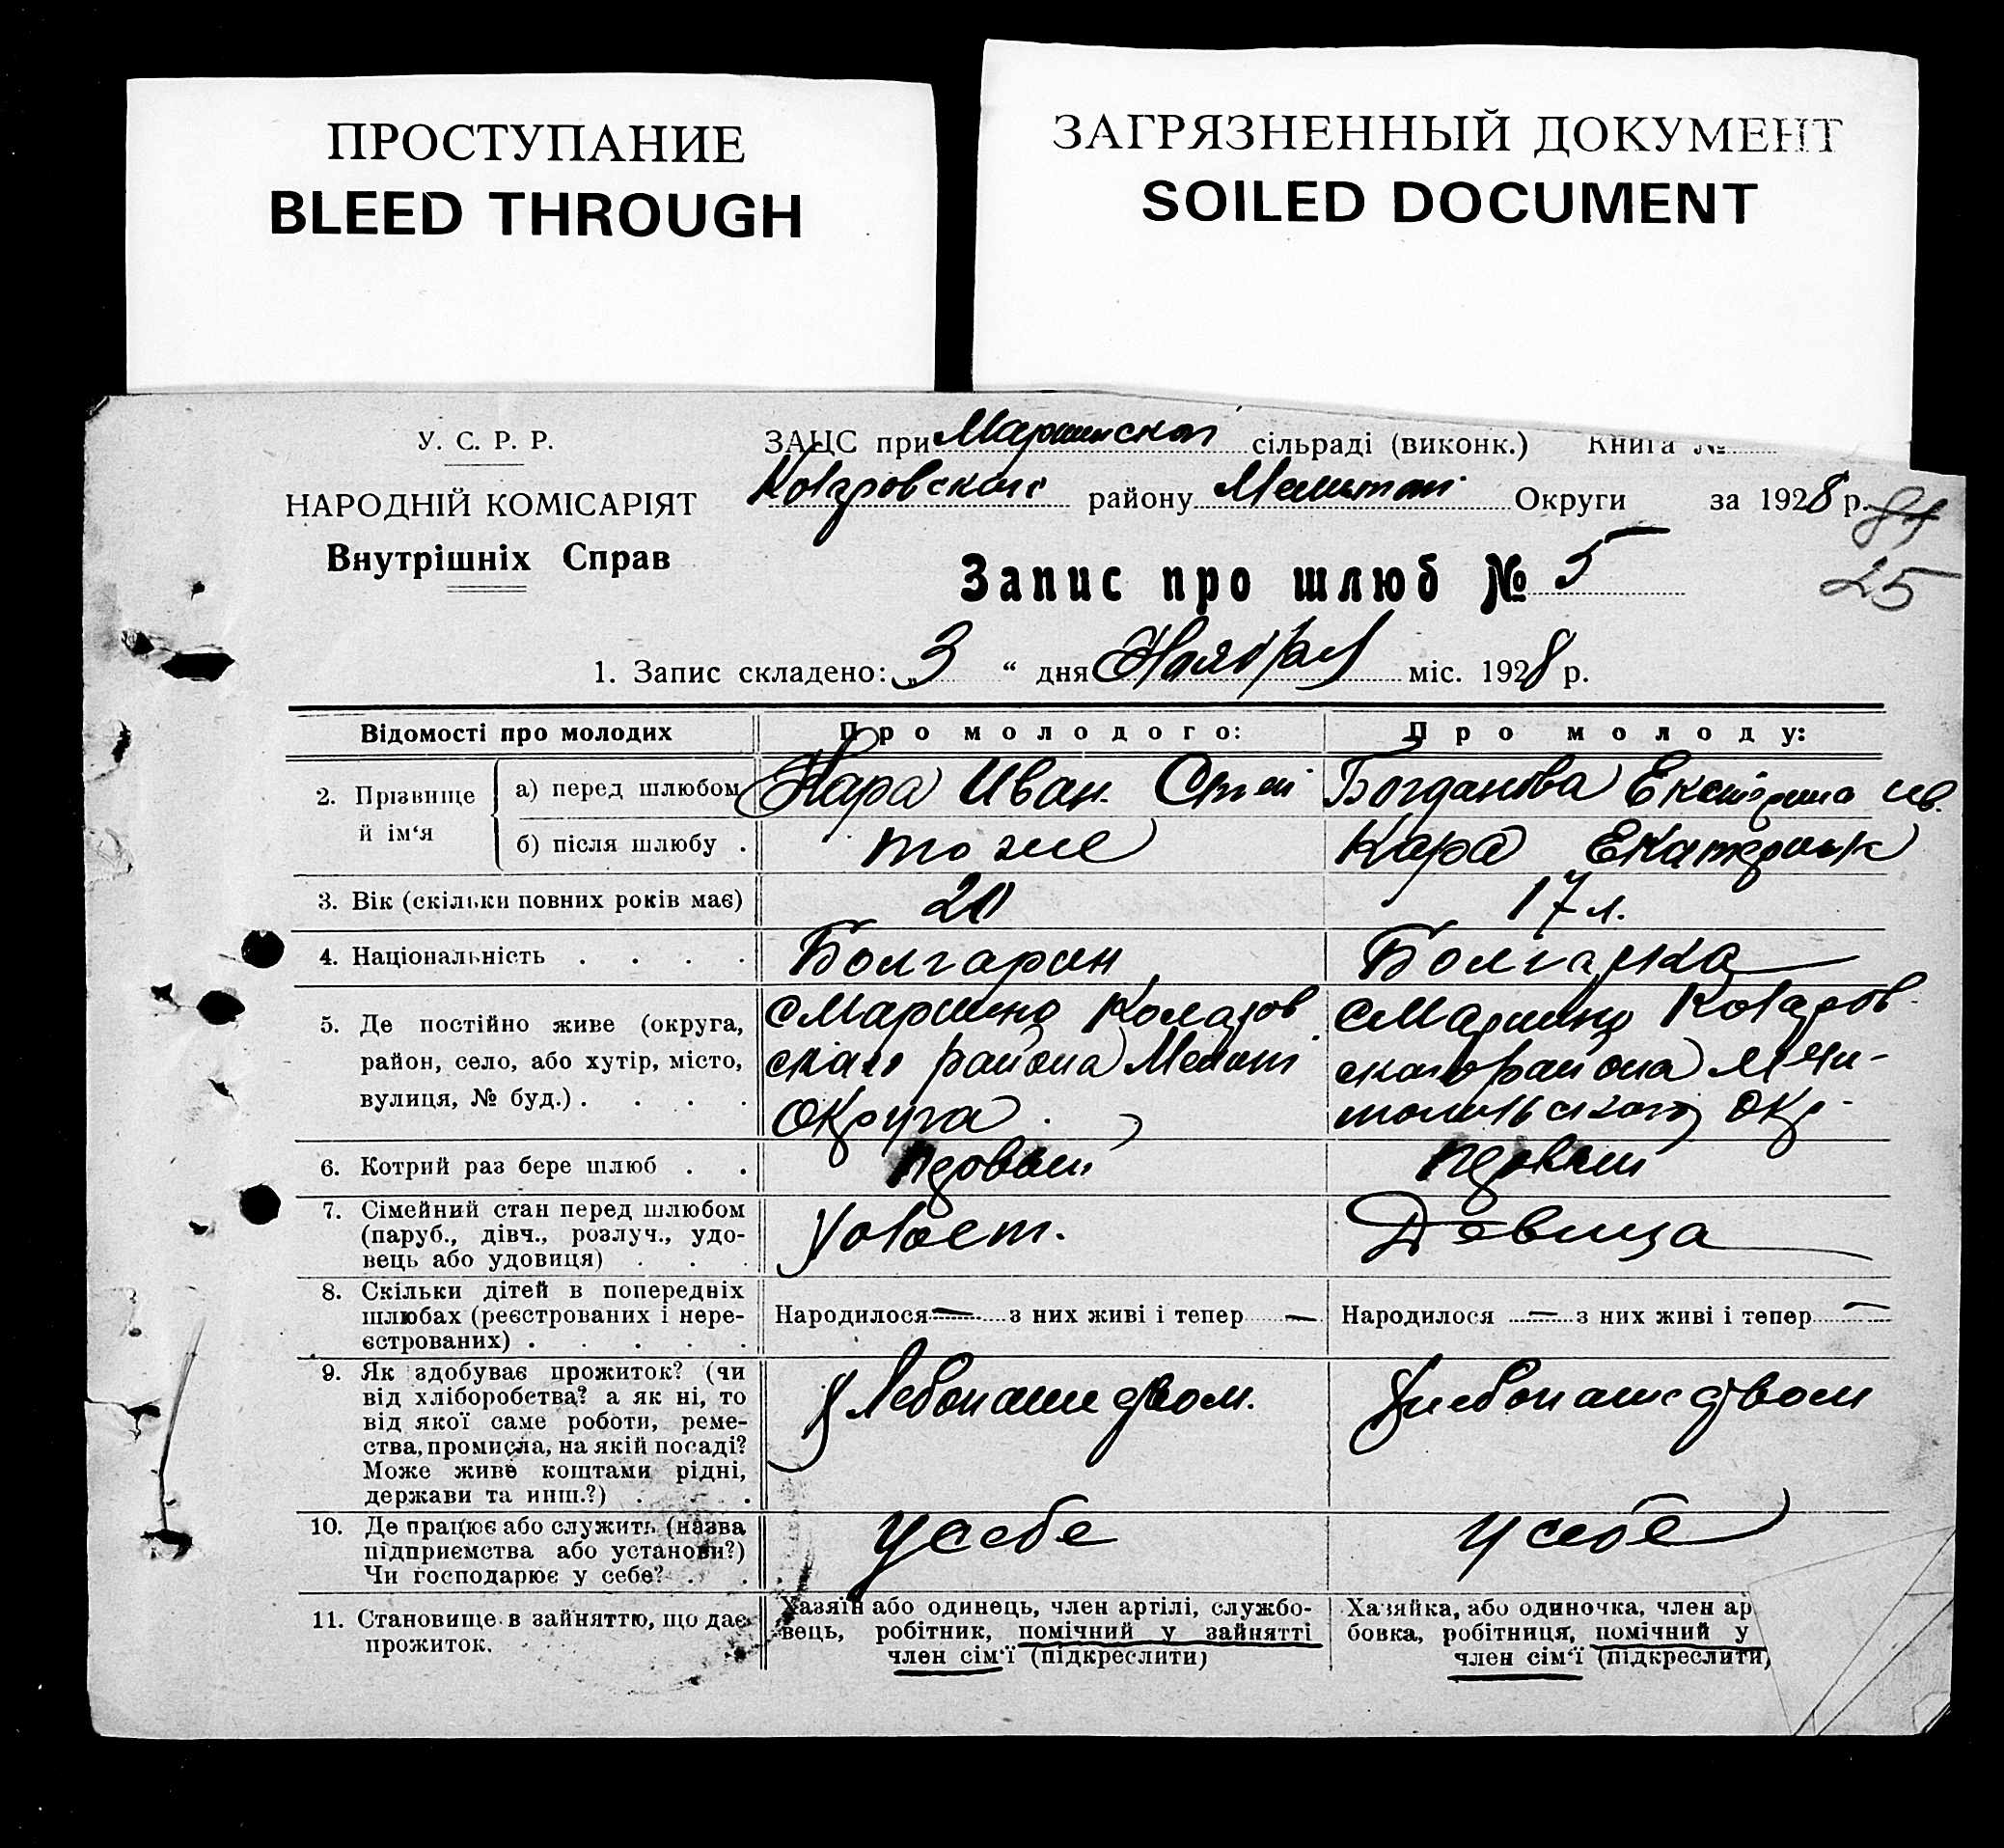 ПРОСТУПАНИЕ
BLEED THROUGH
ЗАГРЯЗНЕННЫЙ ДОКУМЕНТ
SOILED DOCUMENT
У. С. Р. Р.
НАРОДНІЙ КОМІСАРІЯТ
Внутрішніх Справ
ЗАЦС при сільраді (виконк.) Книга №
району Округи за 1928 р.
84
25
Запис про шлюб № 5
1. Запис складено: „3 “ дня Ноября міс. 1928 р.
Відомості про молодих Про молодого: Про молоду:
2. Прізвище й ім‘я а) перед шлюбом Кара Иван Богданова Екатерина Ив.
б) після шлюбу . тоже Кара
3. Вік (скільки повних років має) 20 17 л.
4. Національність . . . . Болгарин Болгарка
5. Де постійно живе (округа,
район, село, або хутір, місто,
вулиця, № буд.) . . . .
с Марино Коларов
скаго района
Округа
с Марино Коларов
скаго района
Окр-
6. Котрий раз бере шлюб . . первый первый
7. Сімейний стан перед шлюбом
(паруб., дівч., розлуч., удо-
вець або удовиця) . . .
Холост. Девица
8. Скільки дітей в попередніх
шлюбах (реєстрованих і нере-
єстрованих) . . . . .
Народилося — з них живі і тепер — Народилося — з них живі і тепер —
9. Як здобуває прожиток? (чи
від хліборобства? а як ні, то
від якої саме роботи, реме-
ства, промисла, на якій посаді?
Може живе коштами рідні,
держави та инш.?) . . .
Хлебопашеством. Хлебопашеством
10. Де працює або служить (назва
підприємства або установи?)
Чи господарює у себе? . .
у себе у себе
11. Становище в зайняттю, що дає
прожиток.
Хазяїн або одинець, член артілі, службо-
вець, робітник, помічний у зайнятті
член сім‘ї (підкреслити)
Хазяйка, або одиночка, член ар
бовка, робітниця, помічний у
член сім‘ї (підкреслити)